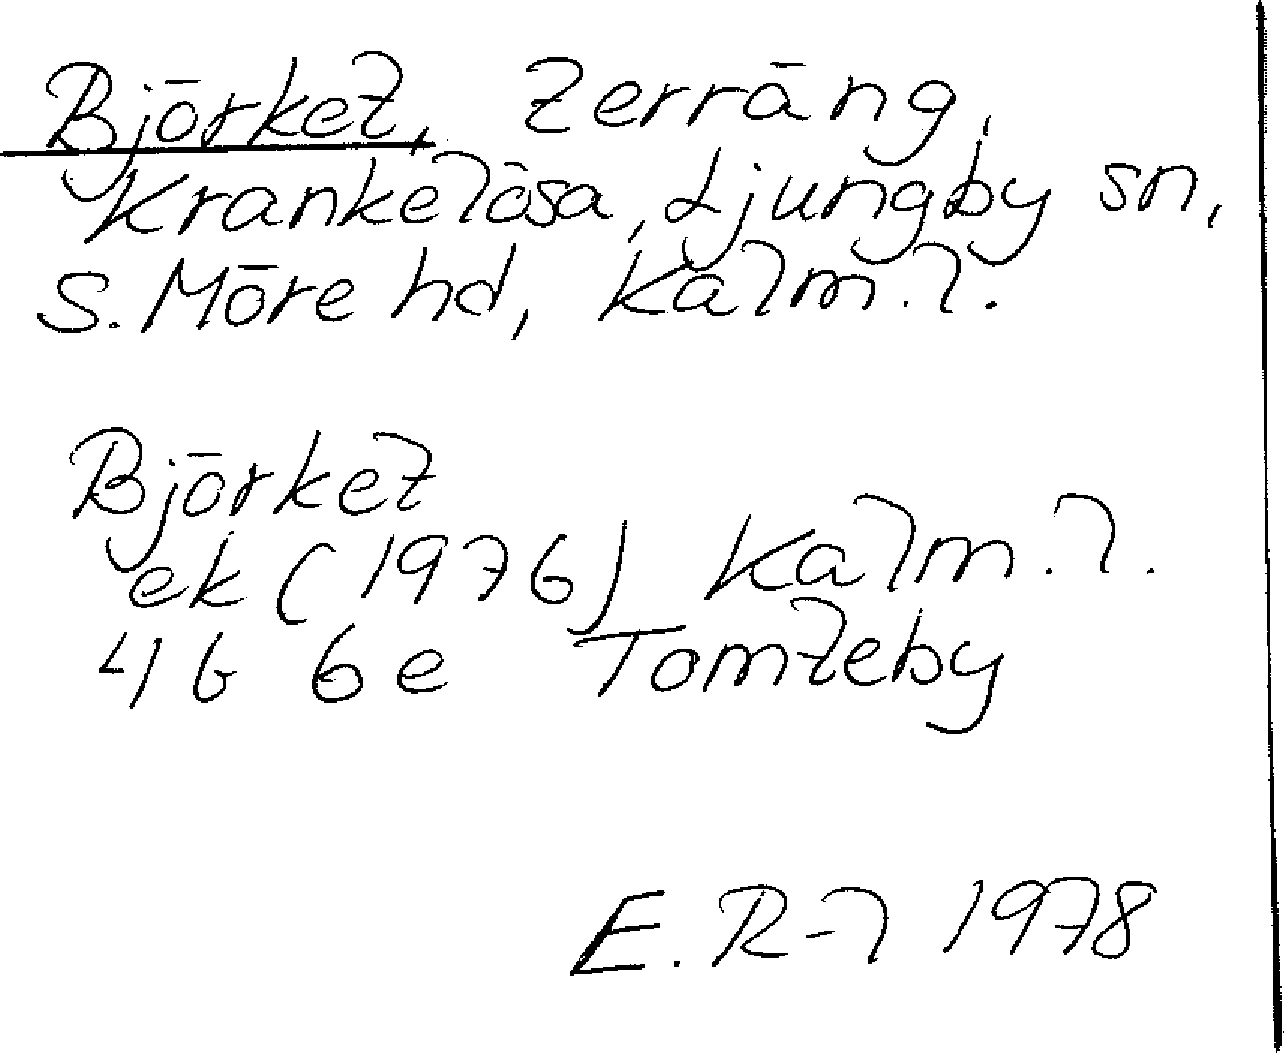 Björket, terräng,
Krankelösa, Ljungby sn,
S. Möre hd, Kalm. l.
Björket
ek (1976) Kalm. l.
4G 6e Tomteby
E. R-l 1978